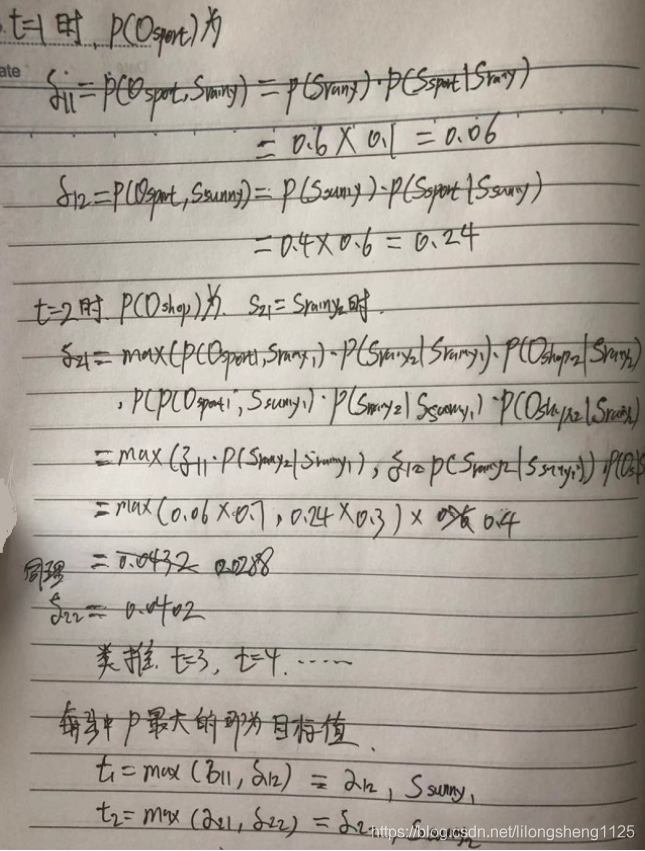 t=1时, P(Osport)为
ate
δ11=P(Osport,Srainy)=P(Srany)·P(Ssport|Srany)
=0.6×0.1=0.06
δ12=P(Osport,Ssunny)=P(Ssuny)·P(Ssport|Ssuny)
=0.4×0.6=0.24
t=2时 P(Oshop)为. S21=Srainy2时.
δ21=max(P(Osport1,Srany1)·P(Srany2|Srany1)·P(Oshop2|Srany2)
,P(P(Osport1,Ssuny1)·P(Srany2|Ssuny1)·P(Oshop2|Srany2
=max(δ11·P(Srany2|Srany1),δ12 P(Srany2|Ssuny1))·P(Os|S
=max(0.06×0.7,0.24×0.3)× 0.4
同理 =0.0432 0.0288
δ22=0.0402
类推 t=3, t=4.……
每步中P最大的即为目标值.
t1=max(δ11,δ12)=δ12, Ssunny1
t2=max(δ21,δ22)=δ22, Ssunny2
https://blog.csdn.net/lilongsheng1125